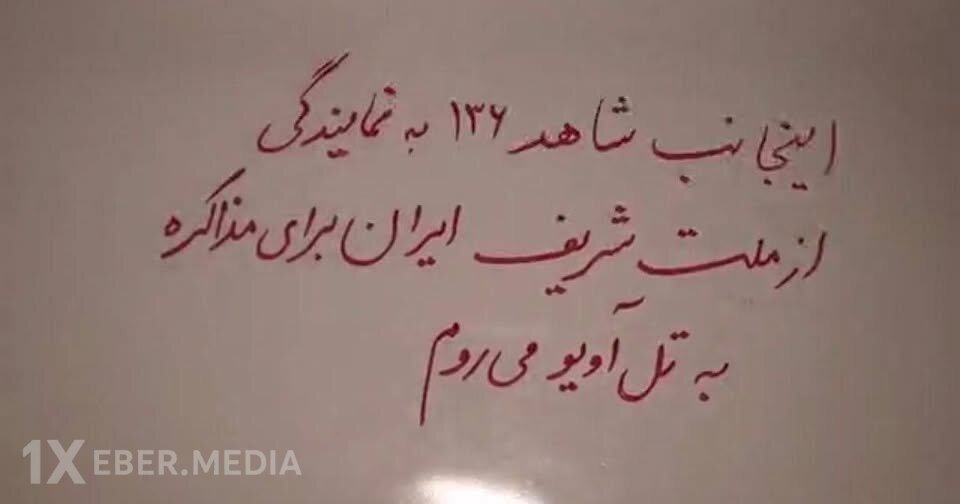 اینجانب شاهد ۱۳۶ به نمایندگی
از ملت شریف ایران برای مذاکره
به تل آویو می روم
1XEBER.MEDIA